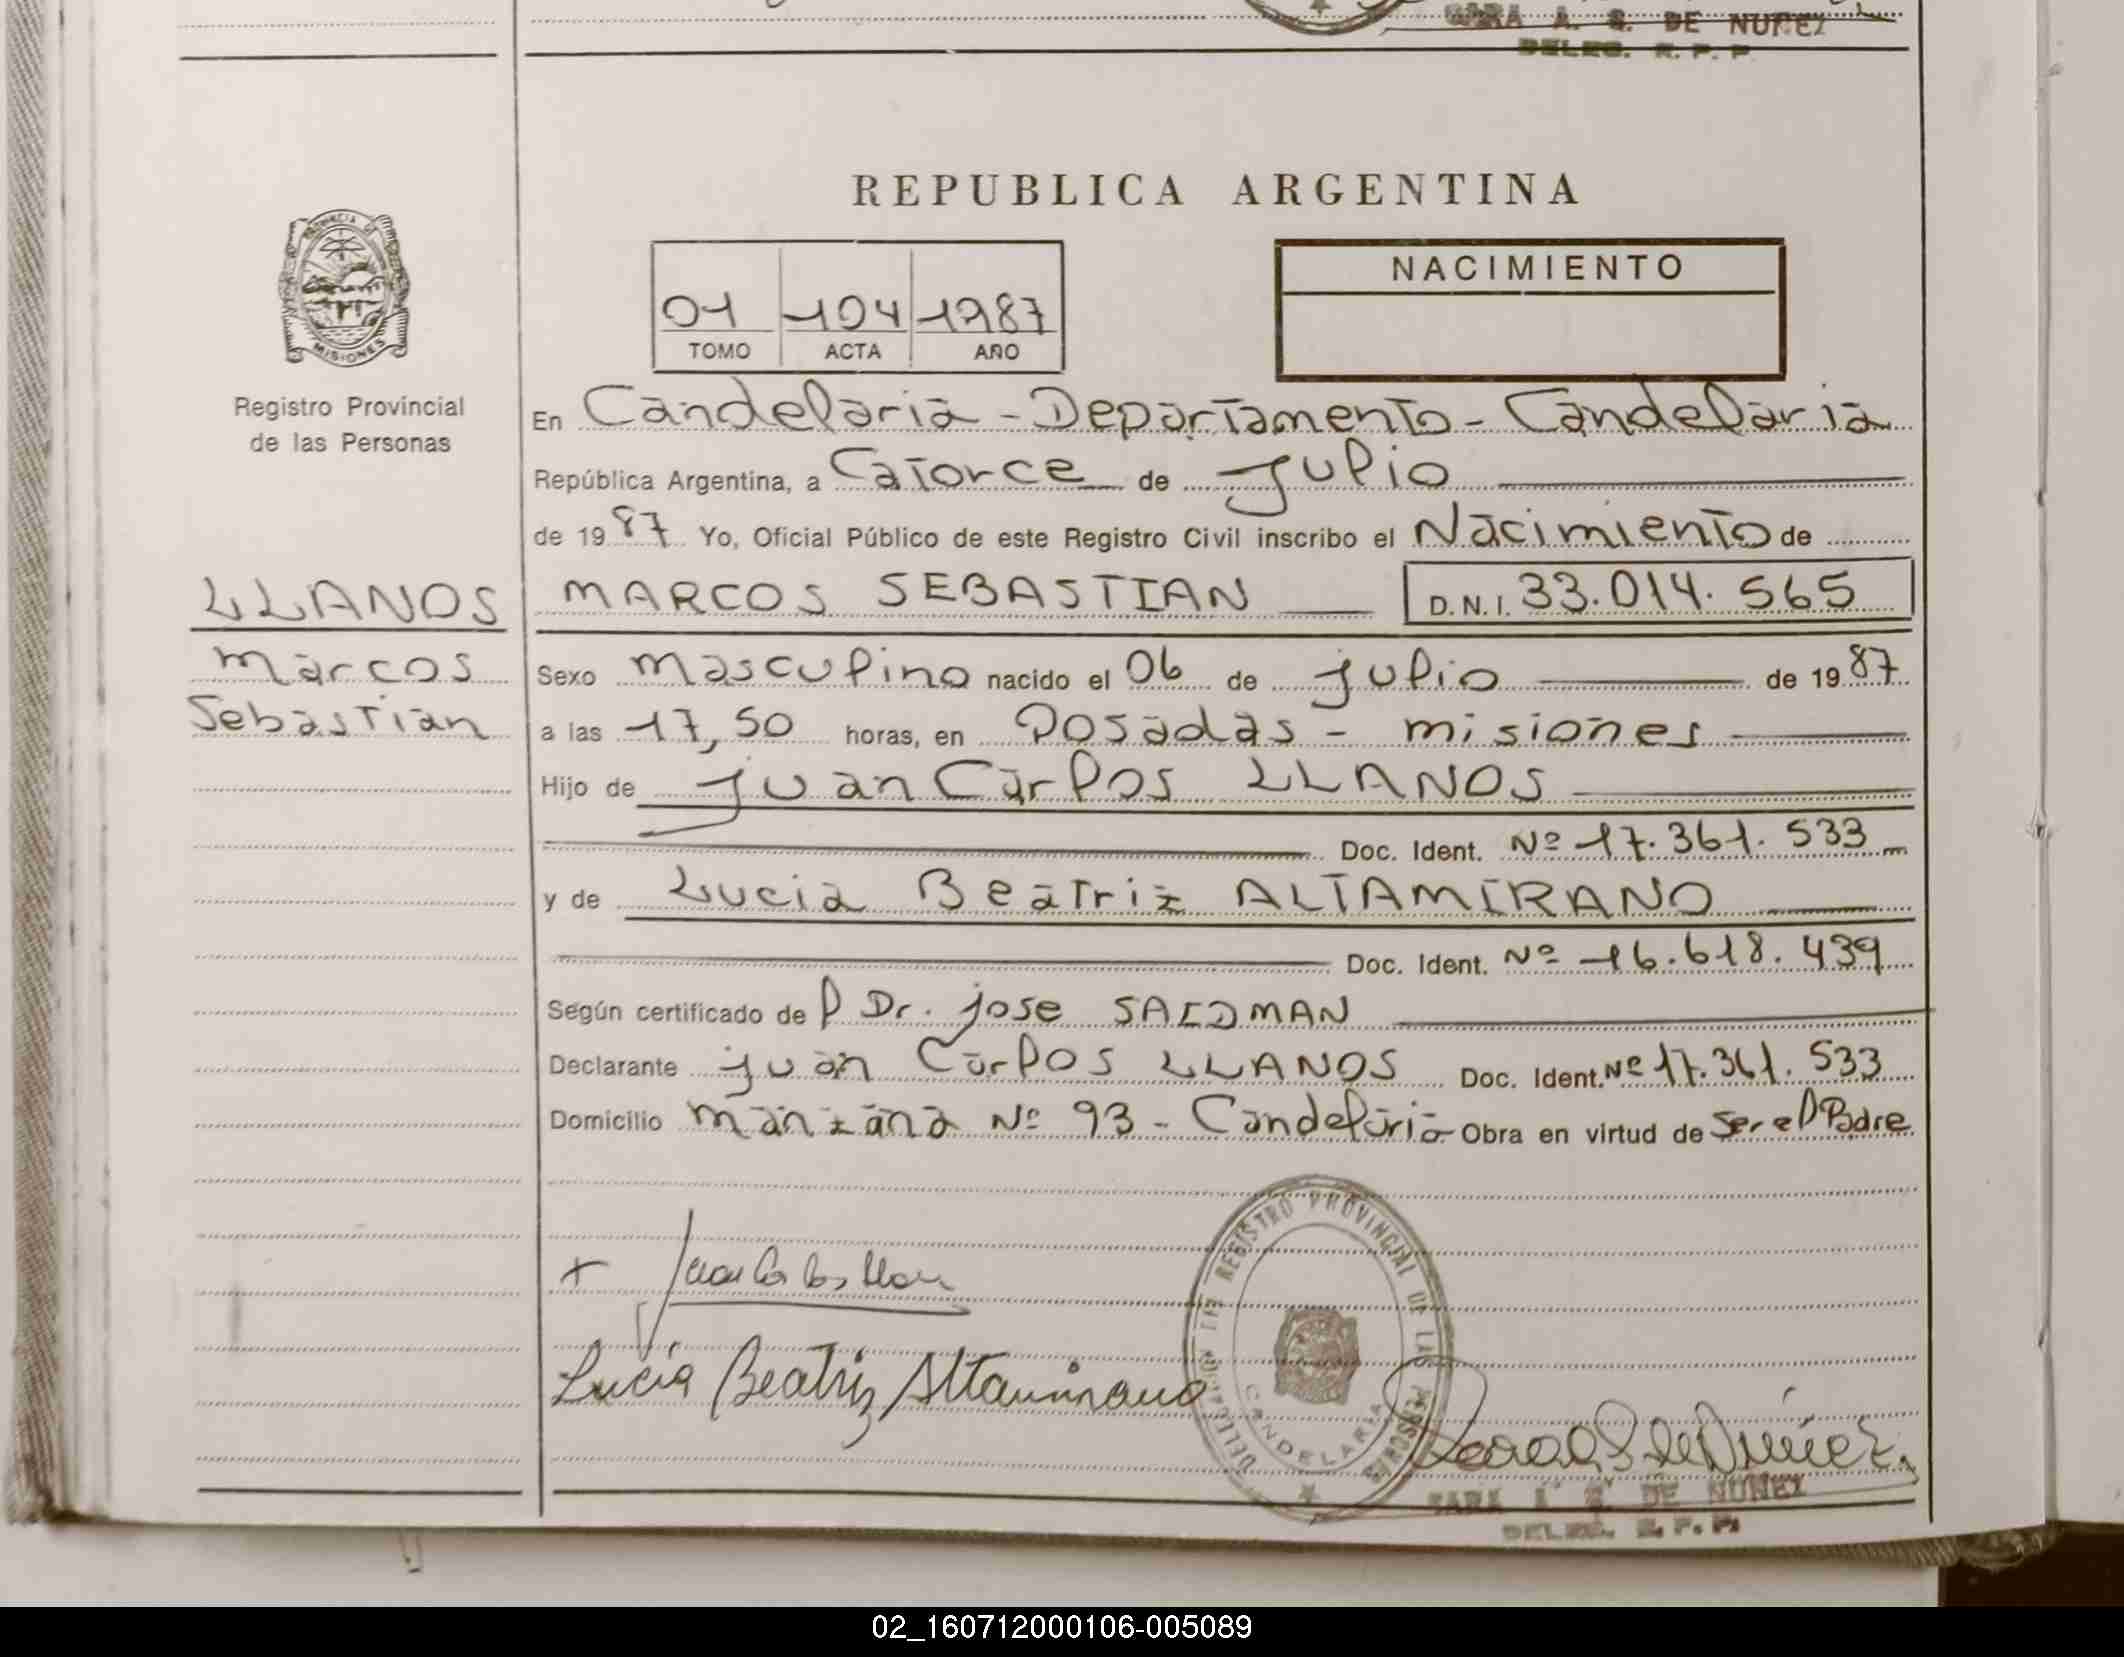 SARA A. S. DE NUÑEZ
DELEG. R. P. P.
REPUBLICA ARGENTINA
PROVINCIA DE MISIONES
Registro Provincial
de las Personas
01 104 1987
TOMO ACTA AÑO
NACIMIENTO
En Candelaria - Departamento - Candelaria
República Argentina, a Catorce de Julio
de 1987 Yo, Oficial Público de este Registro Civil inscribo el Nacimiento de
LLANOS
Marcos
Sebastian
MARCOS SEBASTIAN D.N.I. 33.014.565
Sexo masculino nacido el 06 de julio de 1987
a las 17,50 horas, en Posadas - misiones
Hijo de Juan Carlos LLANOS
Doc. Ident. Nº 17.361.533
y de Lucia Beatriz ALTAMIRANO
Doc. Ident. Nº 16.618.439
Según certificado del Dr. Jose SAIDMAN
Declarante Juan Carlos LLANOS Doc. Ident. Nº 17.361.533
Domicilio Manzana Nº 93 - Candelaria Obra en virtud de Ser el Padre
+ Juan Carlos Llanos
Lucia Beatriz Altamirano
DELEGACION DEL REGISTRO PROVINCIAL DE LAS PERSONAS
CANDELARIA
Sara A S de Núñez
SARA A. S. DE NUÑEZ
DELEG. R. P. P.
02_160712000106-005089